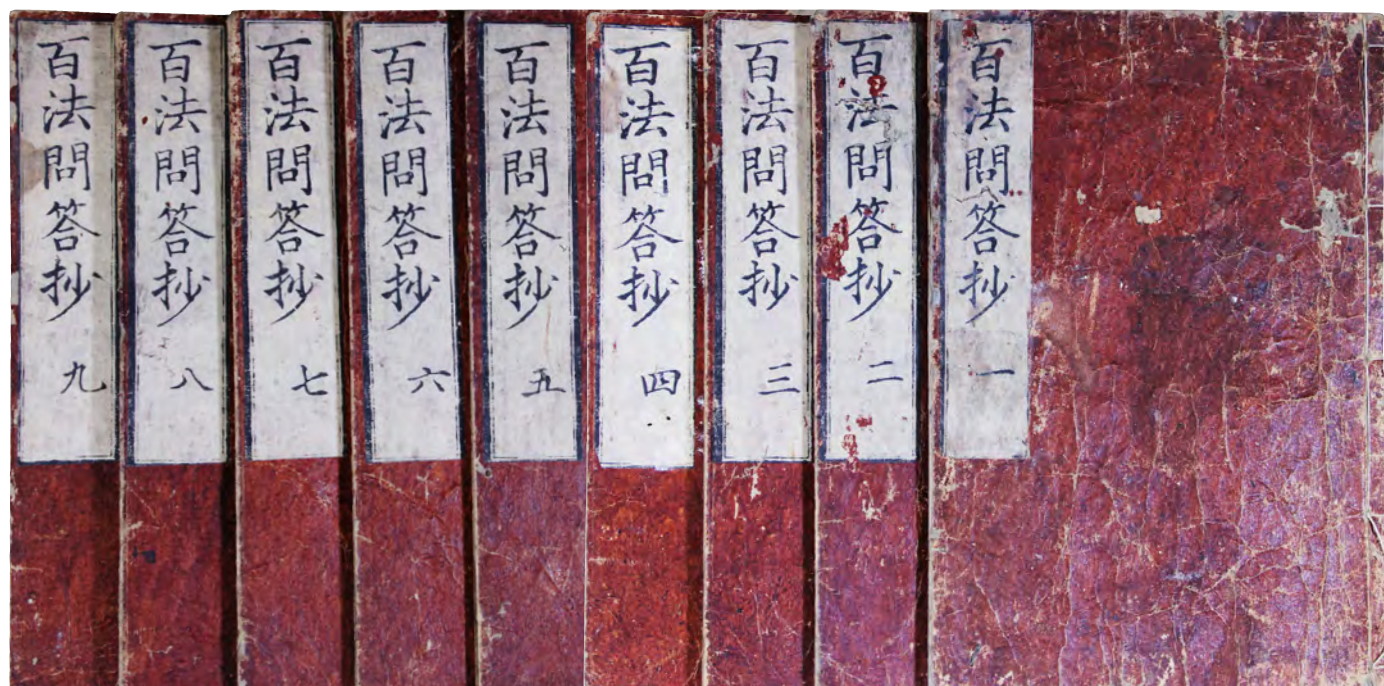 百法問答抄 一
百法問答抄 二
百法問答抄 三
百法問答抄 四
百法問答抄 五
百法問答抄 六
百法問答抄 七
百法問答抄 八
百法問答抄 九